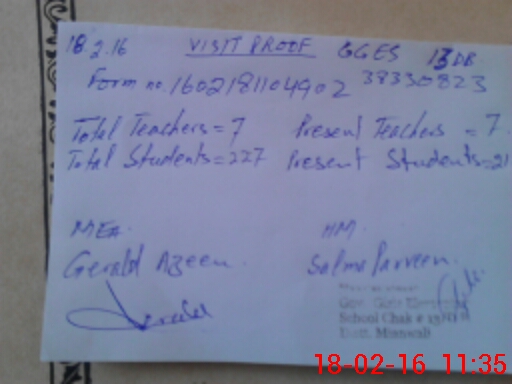 18.2.16 VISIT PROOF GGES 13 DB
Form no. 1602181104902 38330823
Total Teachers = 7 Present Teachers = 7.
Total Students = 227 Present Students = 21
MEA. HM.
Gerald Azeem. Salma Parveen.
Gerald
Gov. Girls
School Chak # 13
Distt. Mianwali
18-02-16 11:35